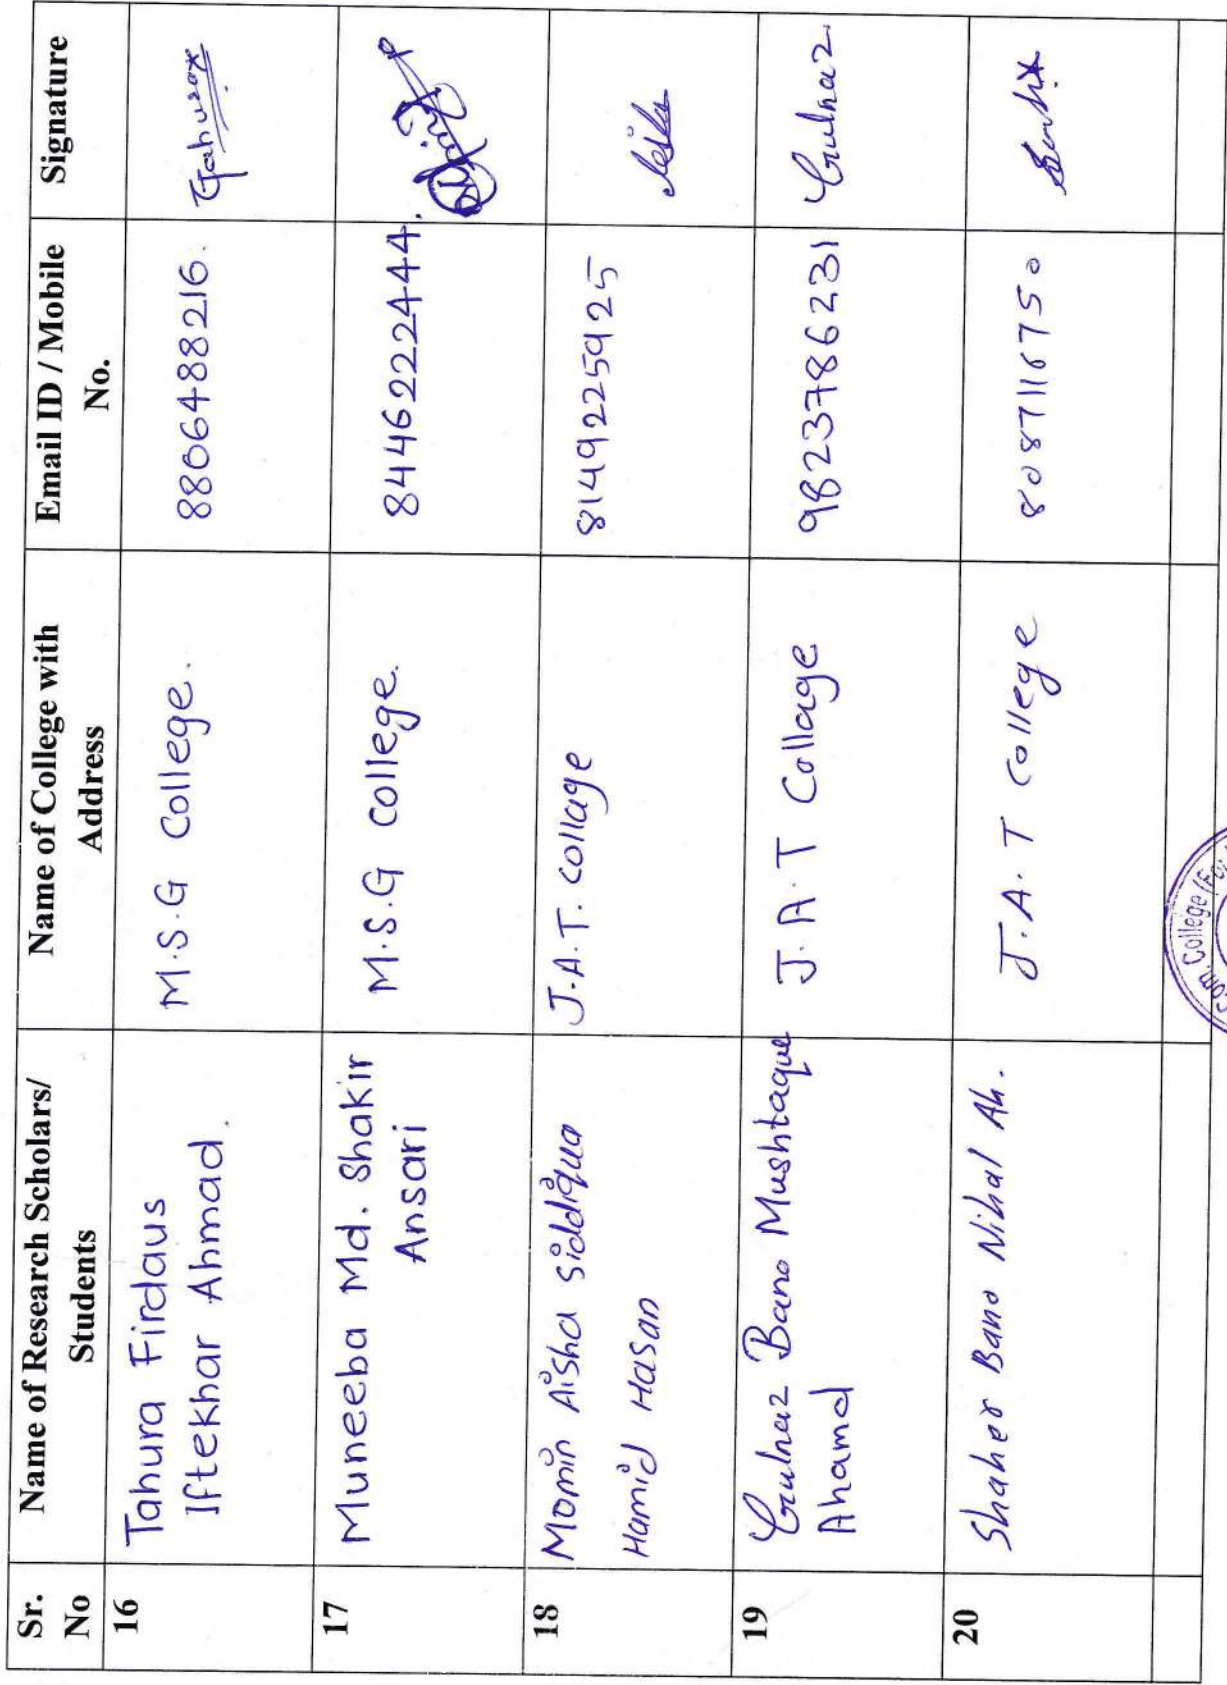 Sr. No
Name of Research Scholars/ Students
Name of College with Address
Email ID / Mobile No.
Signature
16
Tahura Firdaus
Iftekhar Ahmad.
M.S.G College.
8806488216.
Tahura
17
Muneeba Md. Shakir
Ansari
M.S.G college.
8446222444.
18
Momin Aisha Siddiqua
Hamid Hasan
J.A.T. collage
8149225925
19
Gulnaz Bano Mushtaque
Ahamd
J.A.T Collage
9823786231
Gulnaz
20
Shaher Bano Nihal Ah.
J.A.T College
8087116750
Com. College